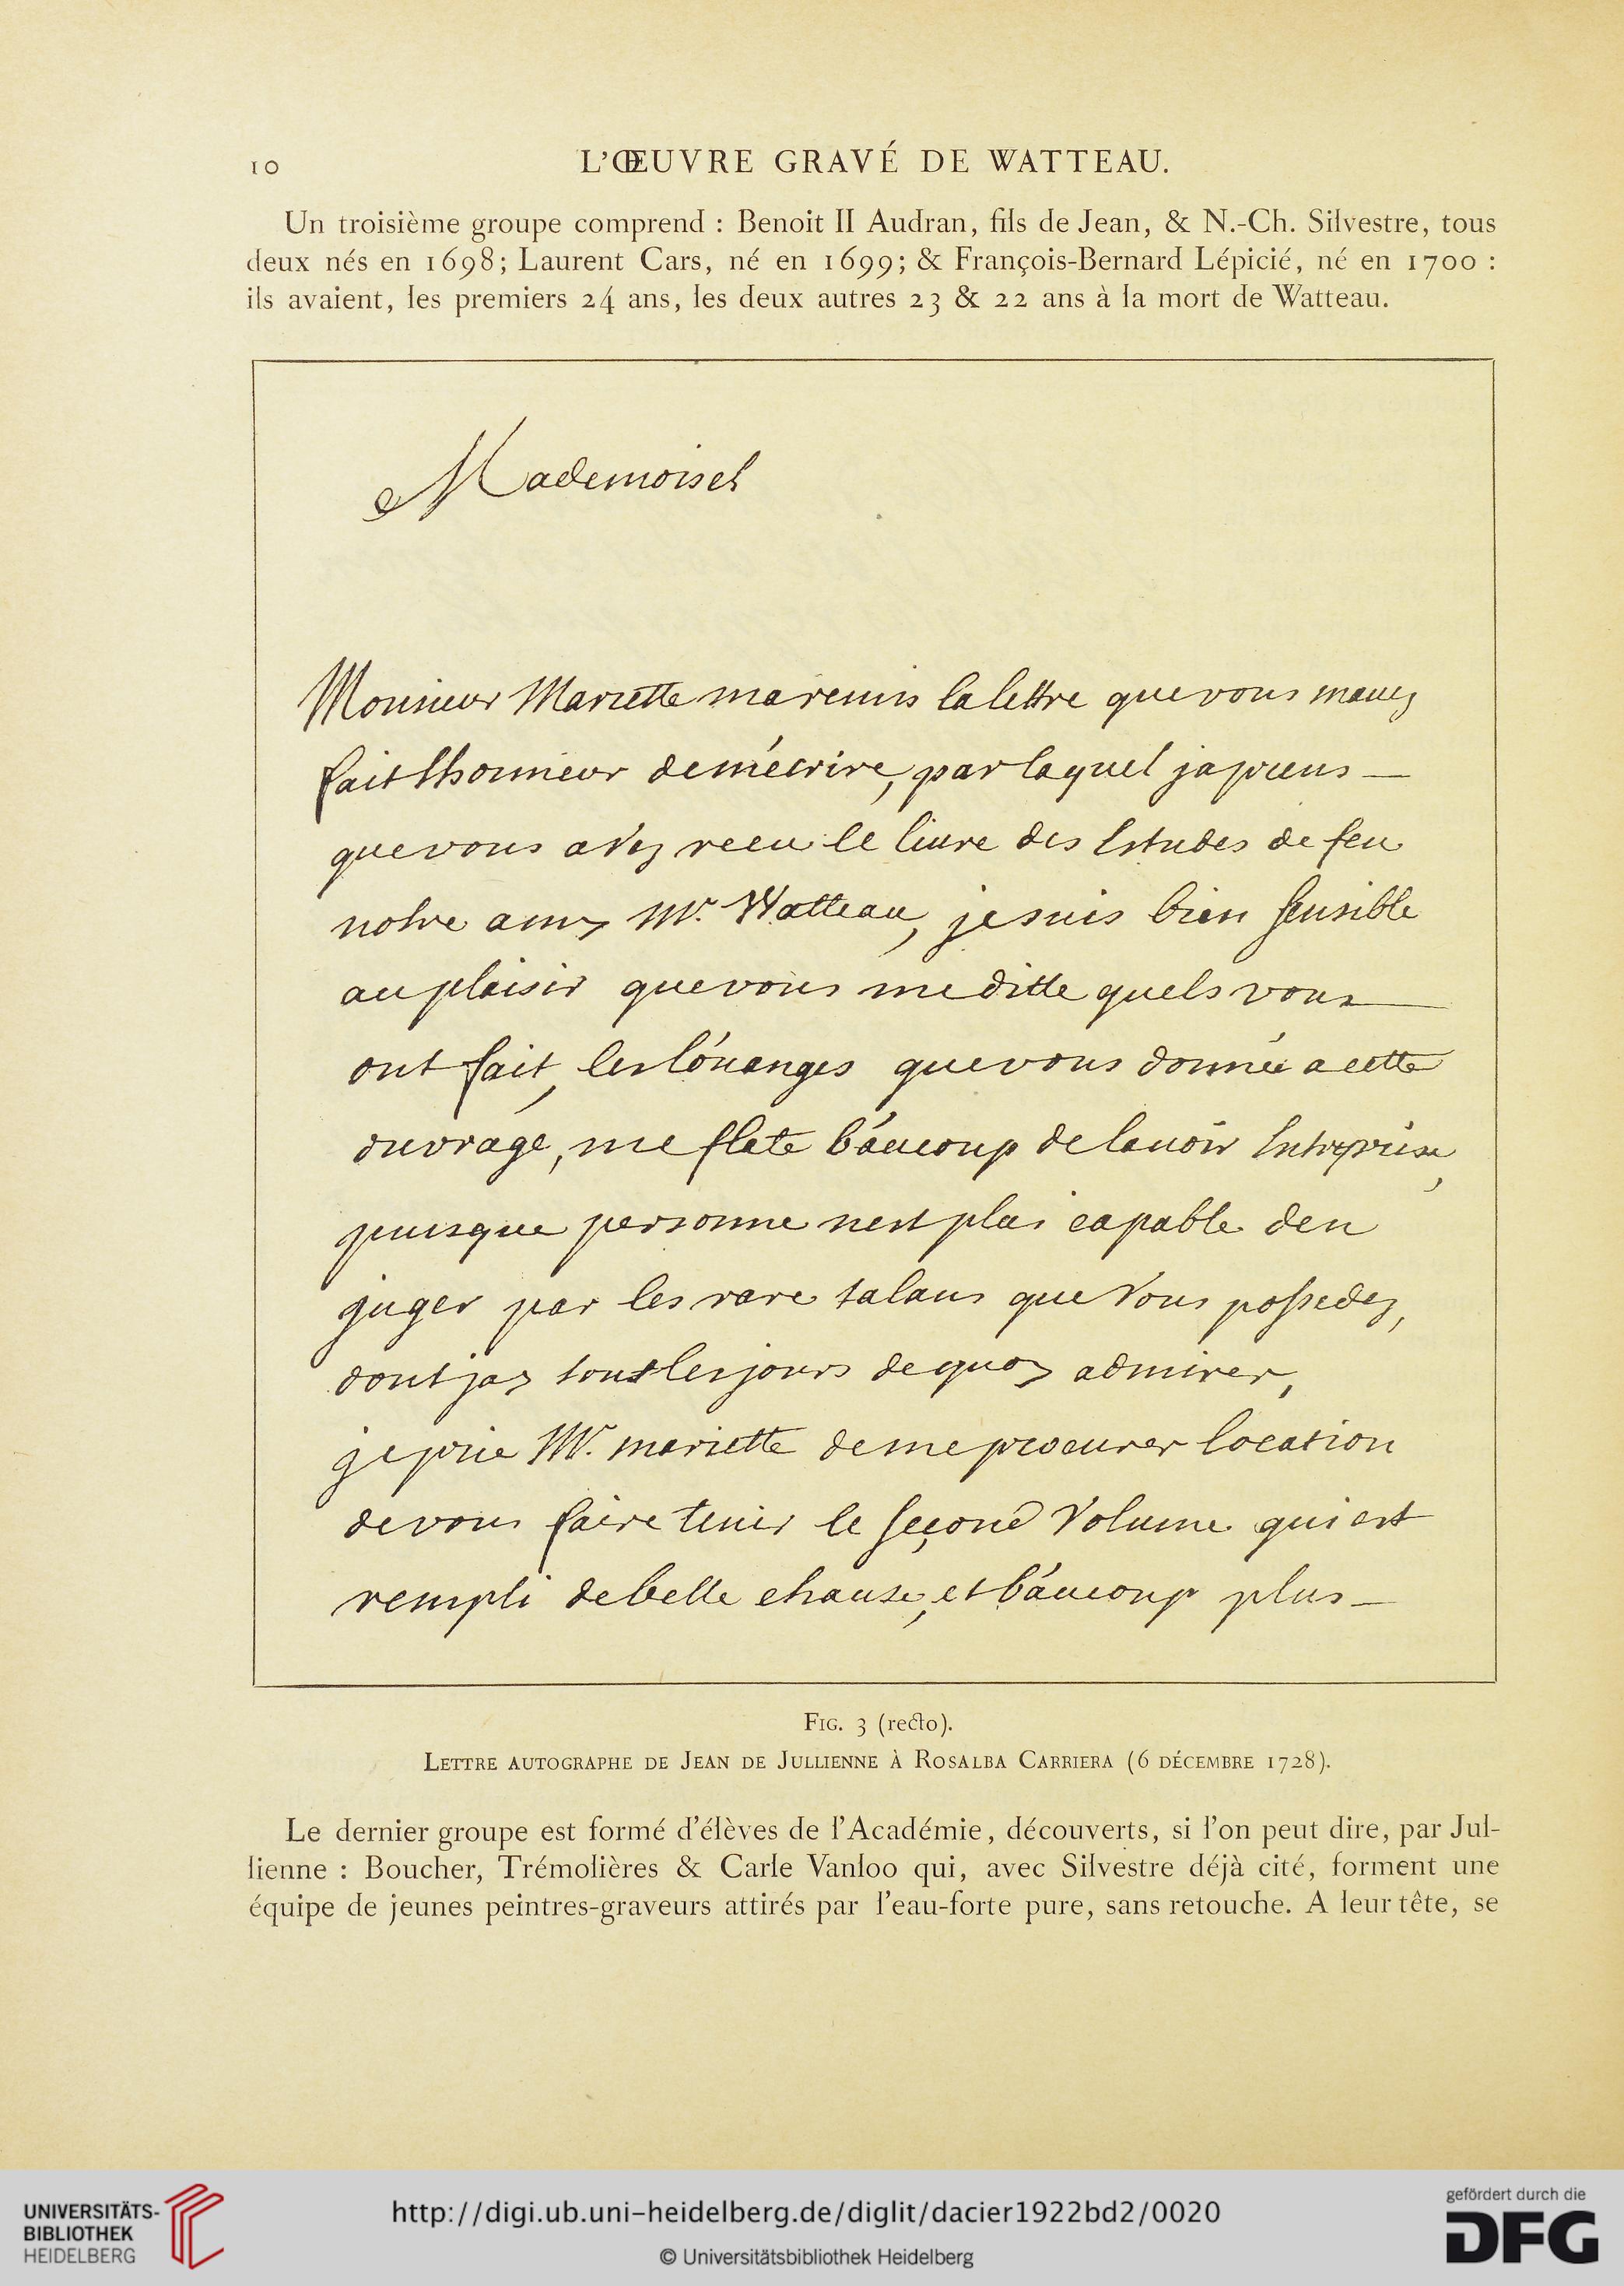 10
L'ŒUVRE GRAVÉ DE WATTEAU.
Un troisième groupe comprend : Benoit II Audran, fils de Jean, & N.-Ch. Silvestre, tous
deux nés en 1698; Laurent Cars, né en 1699; & François-Bernard Lépicié, né en 1700 :
ils avaient, les premiers 24 ans, les deux autres 23 & 22 ans à la mort de Watteau.
Mademoisel
Monsieur Mariette ma remis la lettre que vous mauez
fait lhonneur de mécrire, par laquel japrens —
que vous avez receu le liure des Estudes de feu
notre amy Mr. Watteau, je suis bien sensible
au plaisir que vous me ditte quels vous
ont fait, les loüanges que vous donnée a cette
ouvrage, me flate báucoup de lauoir Entreprise,
puisque personne nest plus capable den
juger par les rare talans que Vous possedez,
dont jay tous les jours de quoy admirer,
je prie Mr. mariette de me procurer locasion
de vous faire tenir le second Volume qui est
rempli de belle chause, et báucoup plus —
FIG. 3 (recto).
LETTRE AUTOGRAPHE DE JEAN DE JULLIENNE À ROSALBA CARRIERA (6 DÉCEMBRE 1728).
Le dernier groupe est formé d'élèves de l'Académie, découverts, si l'on peut dire, par Jul-
lienne : Boucher, Trémolières & Carle Vanloo qui, avec Silvestre déjà cité, forment une
équipe de jeunes peintres-graveurs attirés par l'eau-forte pure, sans retouche. A leur tête, se
UNIVERSITÄTS-
BIBLIOTHEK
HEIDELBERG
http://digi.ub.uni-heidelberg.de/diglit/dacier1922bd2/0020
© Universitätsbibliothek Heidelberg
gefördert durch die
DFG